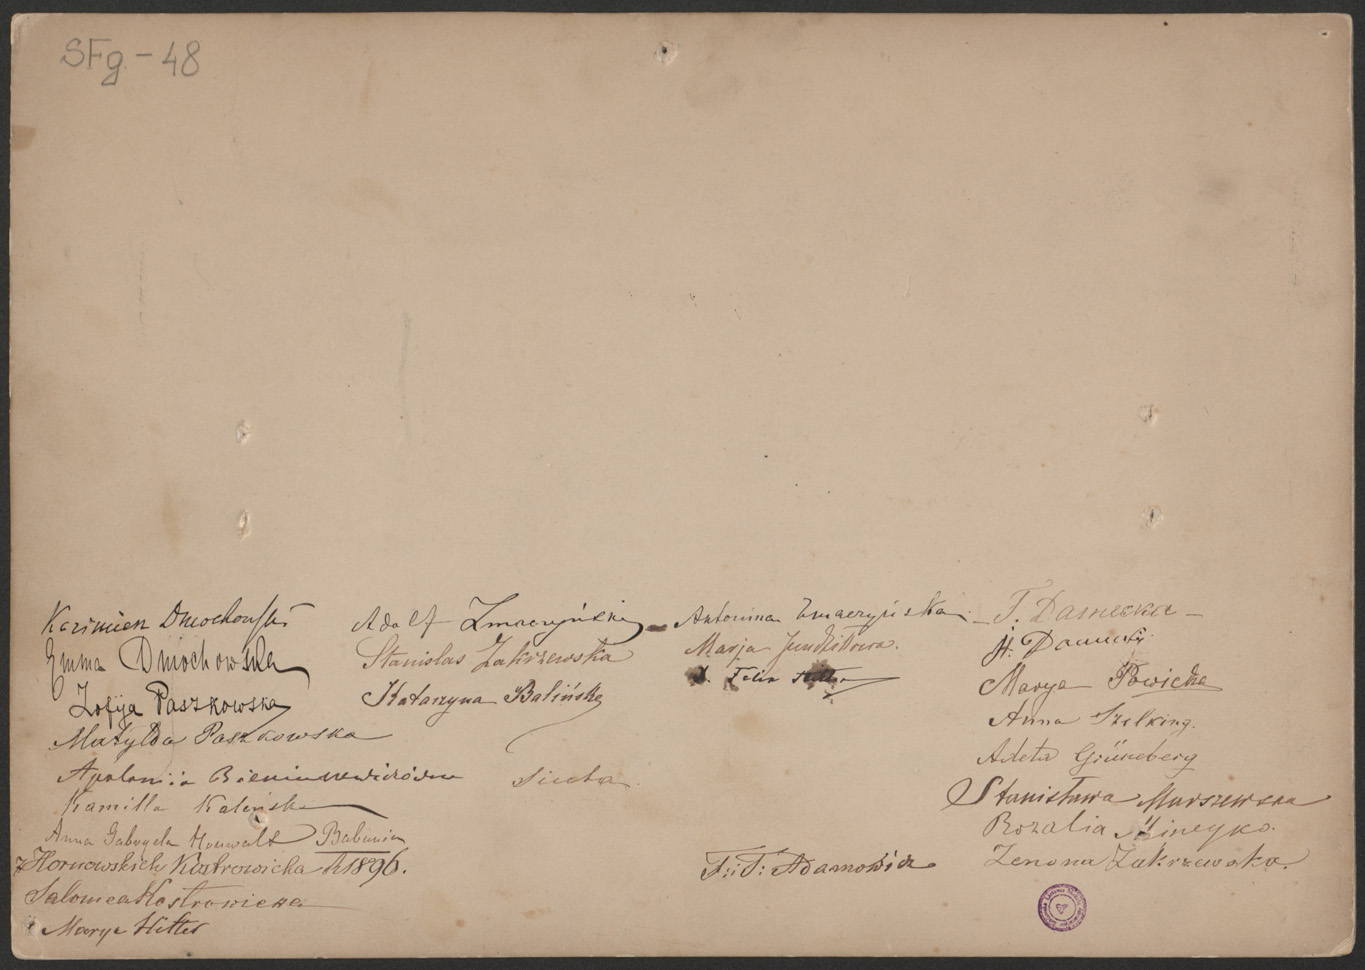 SFg - 48
Kazimierz Dmochowski
Emma Dmochowska
Zofija Paszkowska
Matylda Paszkowska
Apolonija Bieniuszewiczówna
Kamilla Kaleńska
Anna Gabryela Houwalt Babunia
z Hornowskich Kostrowicka 1896.
Salomea Kostrowicka
Marya Hitter
Adolf Zmaczyński
Stanislas Zakrzewska
Katarzyna Balińska
siecha
Antonina Zmaczyńska
Marja Jundziłłowa.
Felix
F: i F: Adamowicz
F. Damecka
H. Damecki
Marya Powicka
Anna Szelking.
Adela Grüneberg
Stanisława Marszewska
Rozalia Mineyko.
Zenona Zakrzewska.